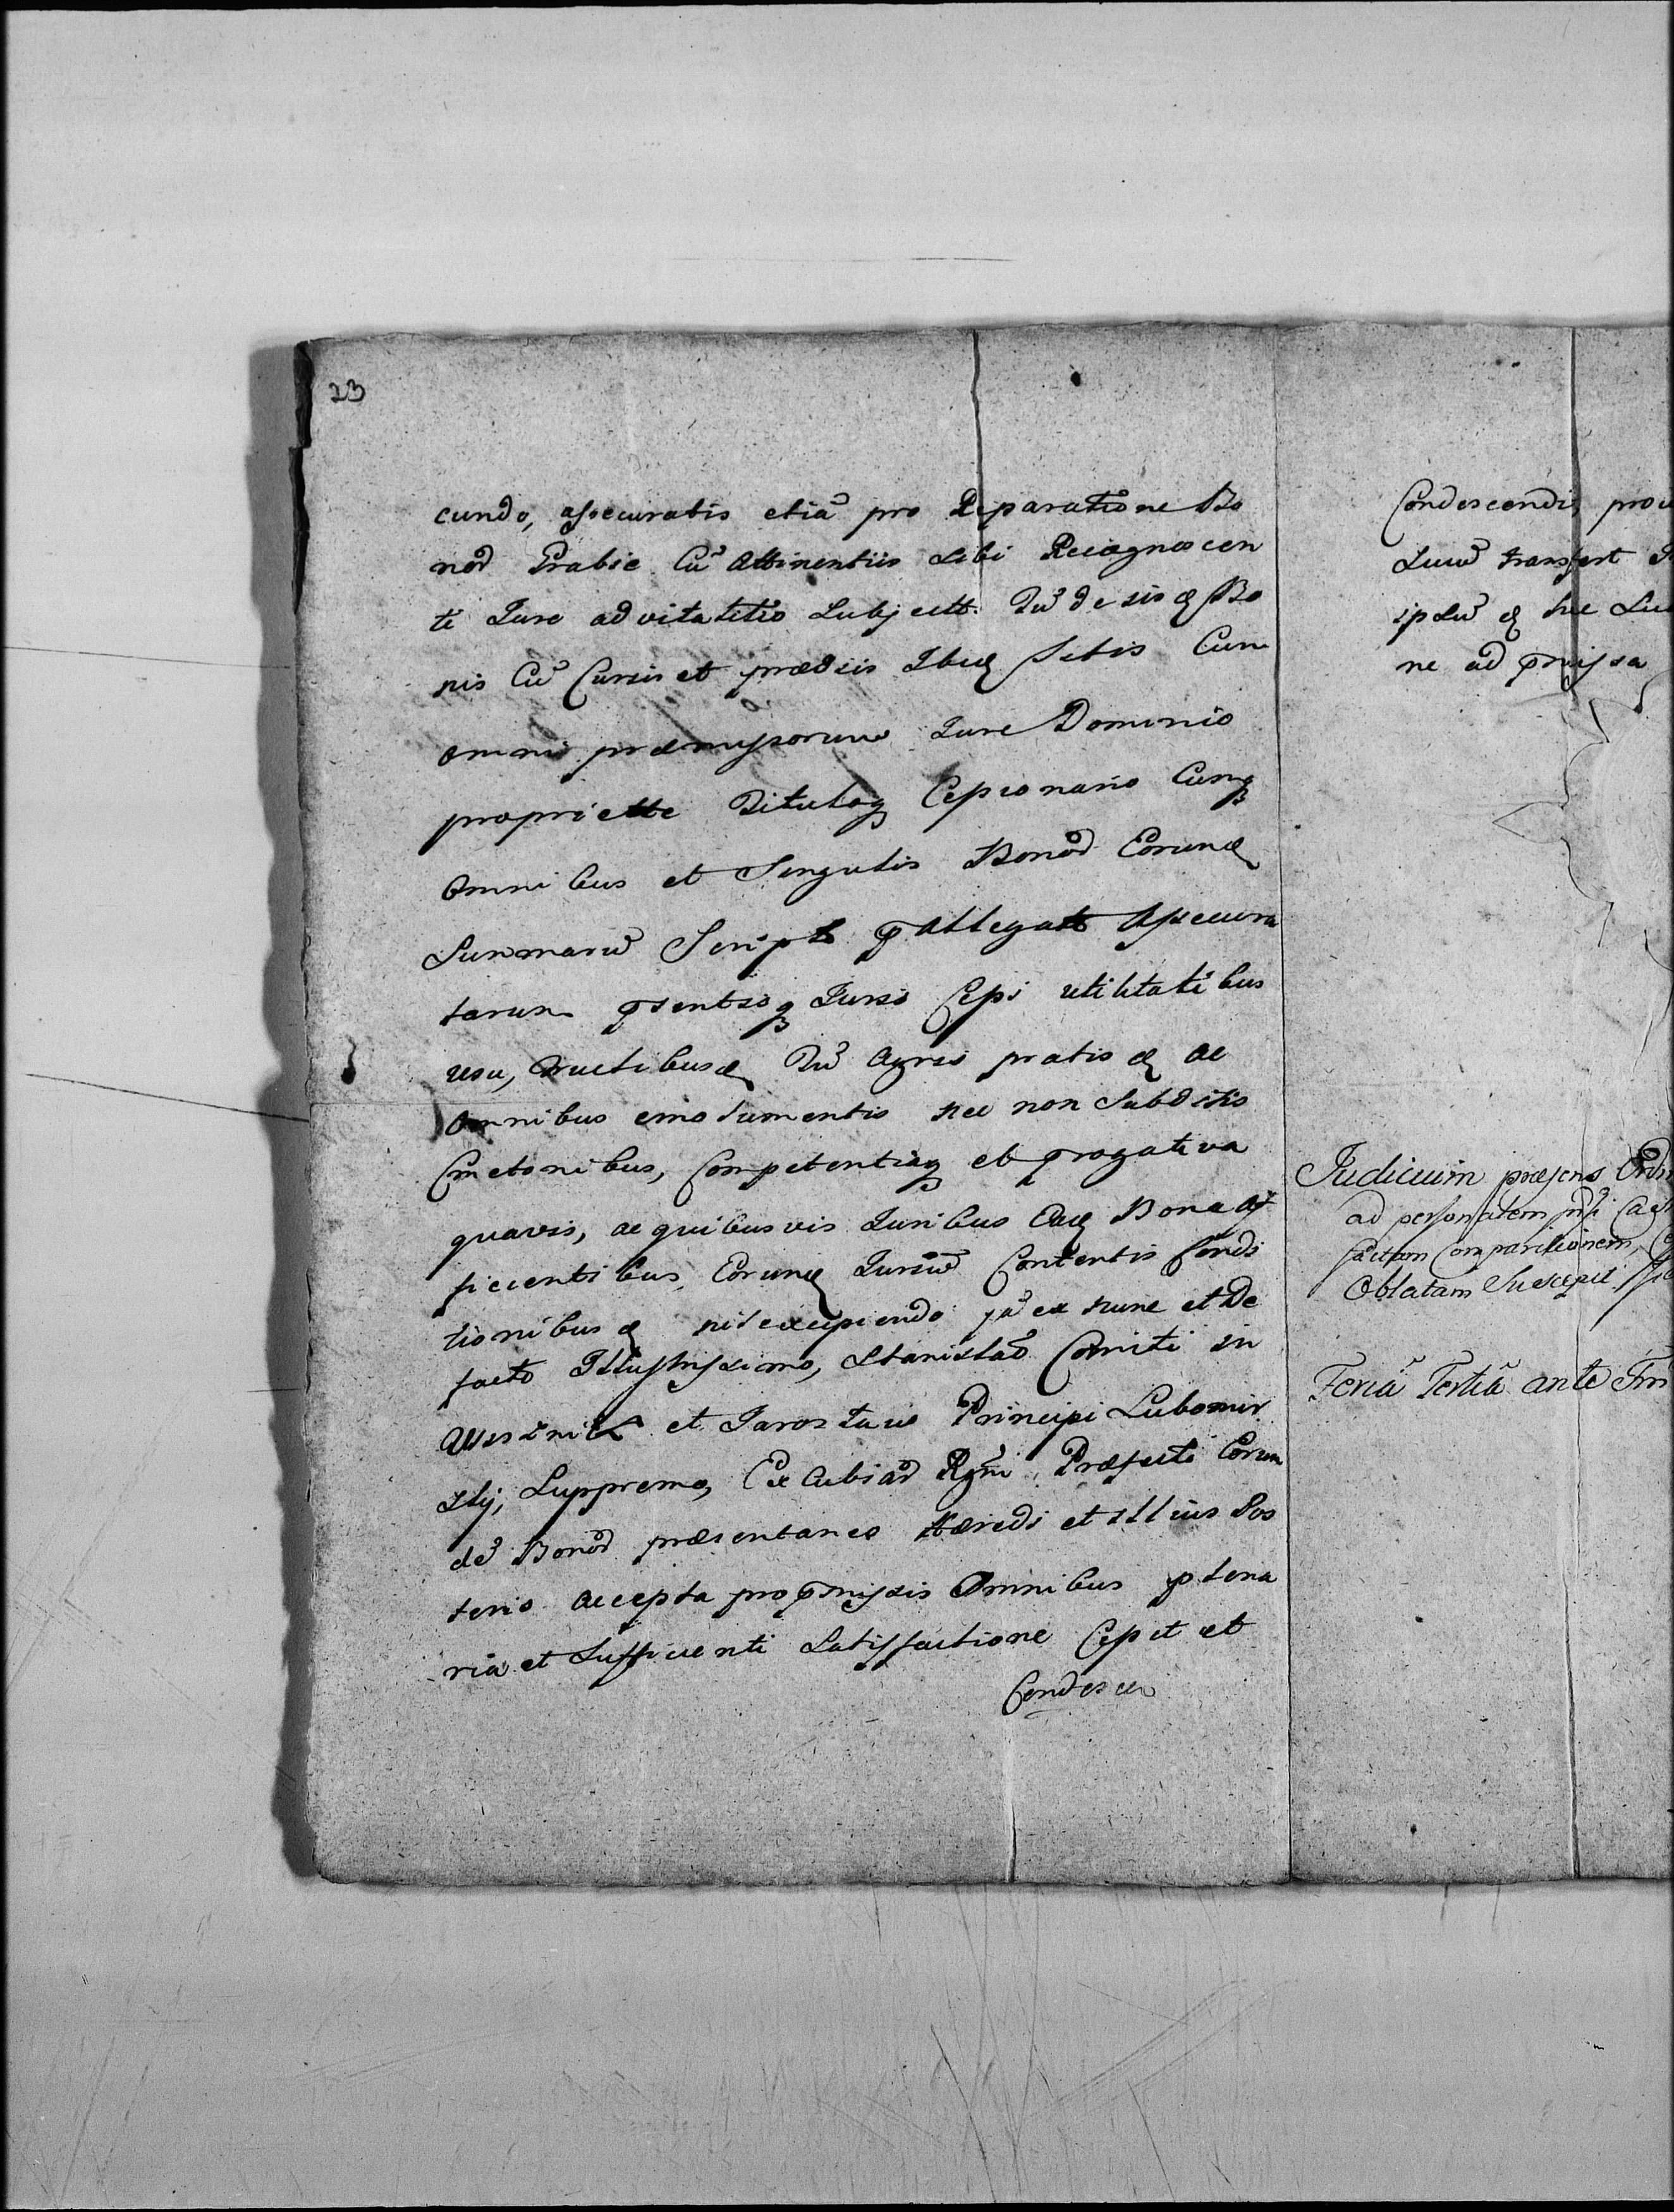 23
cundo, assecuratis etiã pro Reparatiõne Bo
nor̃ Grabie Cũ Attinentiis Sibi Recognoscen
ti Jure advitalitio Subjectt. Tũ de sis q Bo
nis Cũ Curiis et prædiis Ibiq Sitis Cum
omni præmissorum Jure Dominio
propriette Tituloq Cessionario Cumq
Omnibus et Singulis Bonor̃ Eorundẽ
Summarũ Script pallegatt Assecura
tarum psentsoq Jursis Cessi utilitatibus
usu, fructibusq Tũ Agris pratis q ac
Omnibus emolumentis nec non Subditis
Cmetonibus, Competentiaq et progativa
quavis, ac quibusvis Juribus Eaq Bona Af
ficientibus Eorunq Jursũ Contentis Condi
tionibus q nil excipiendo jã ex nunc et De
facto Illustrissimo, Stanislaõ Comiti in
Wisznicz et Jaroslaw Principi Lubomir
skij, Suppremo, Excubiar̃ Rgñi Præfecto Eorun
dẽ Bonor̃ præsentaneo Hæredi et illius Pos
teris accepta pro pmissis Omnibus plena
ria et Sufficienti Satisfactione Cessit et
Condescen
Condescendit, prou
Suũ transfert
ipsũ q hic
ne ad pmissa
Judicium præsens
ad personalem
factam Comparitionem,
Oblatam Suscepit
Feriã Tertiã ante